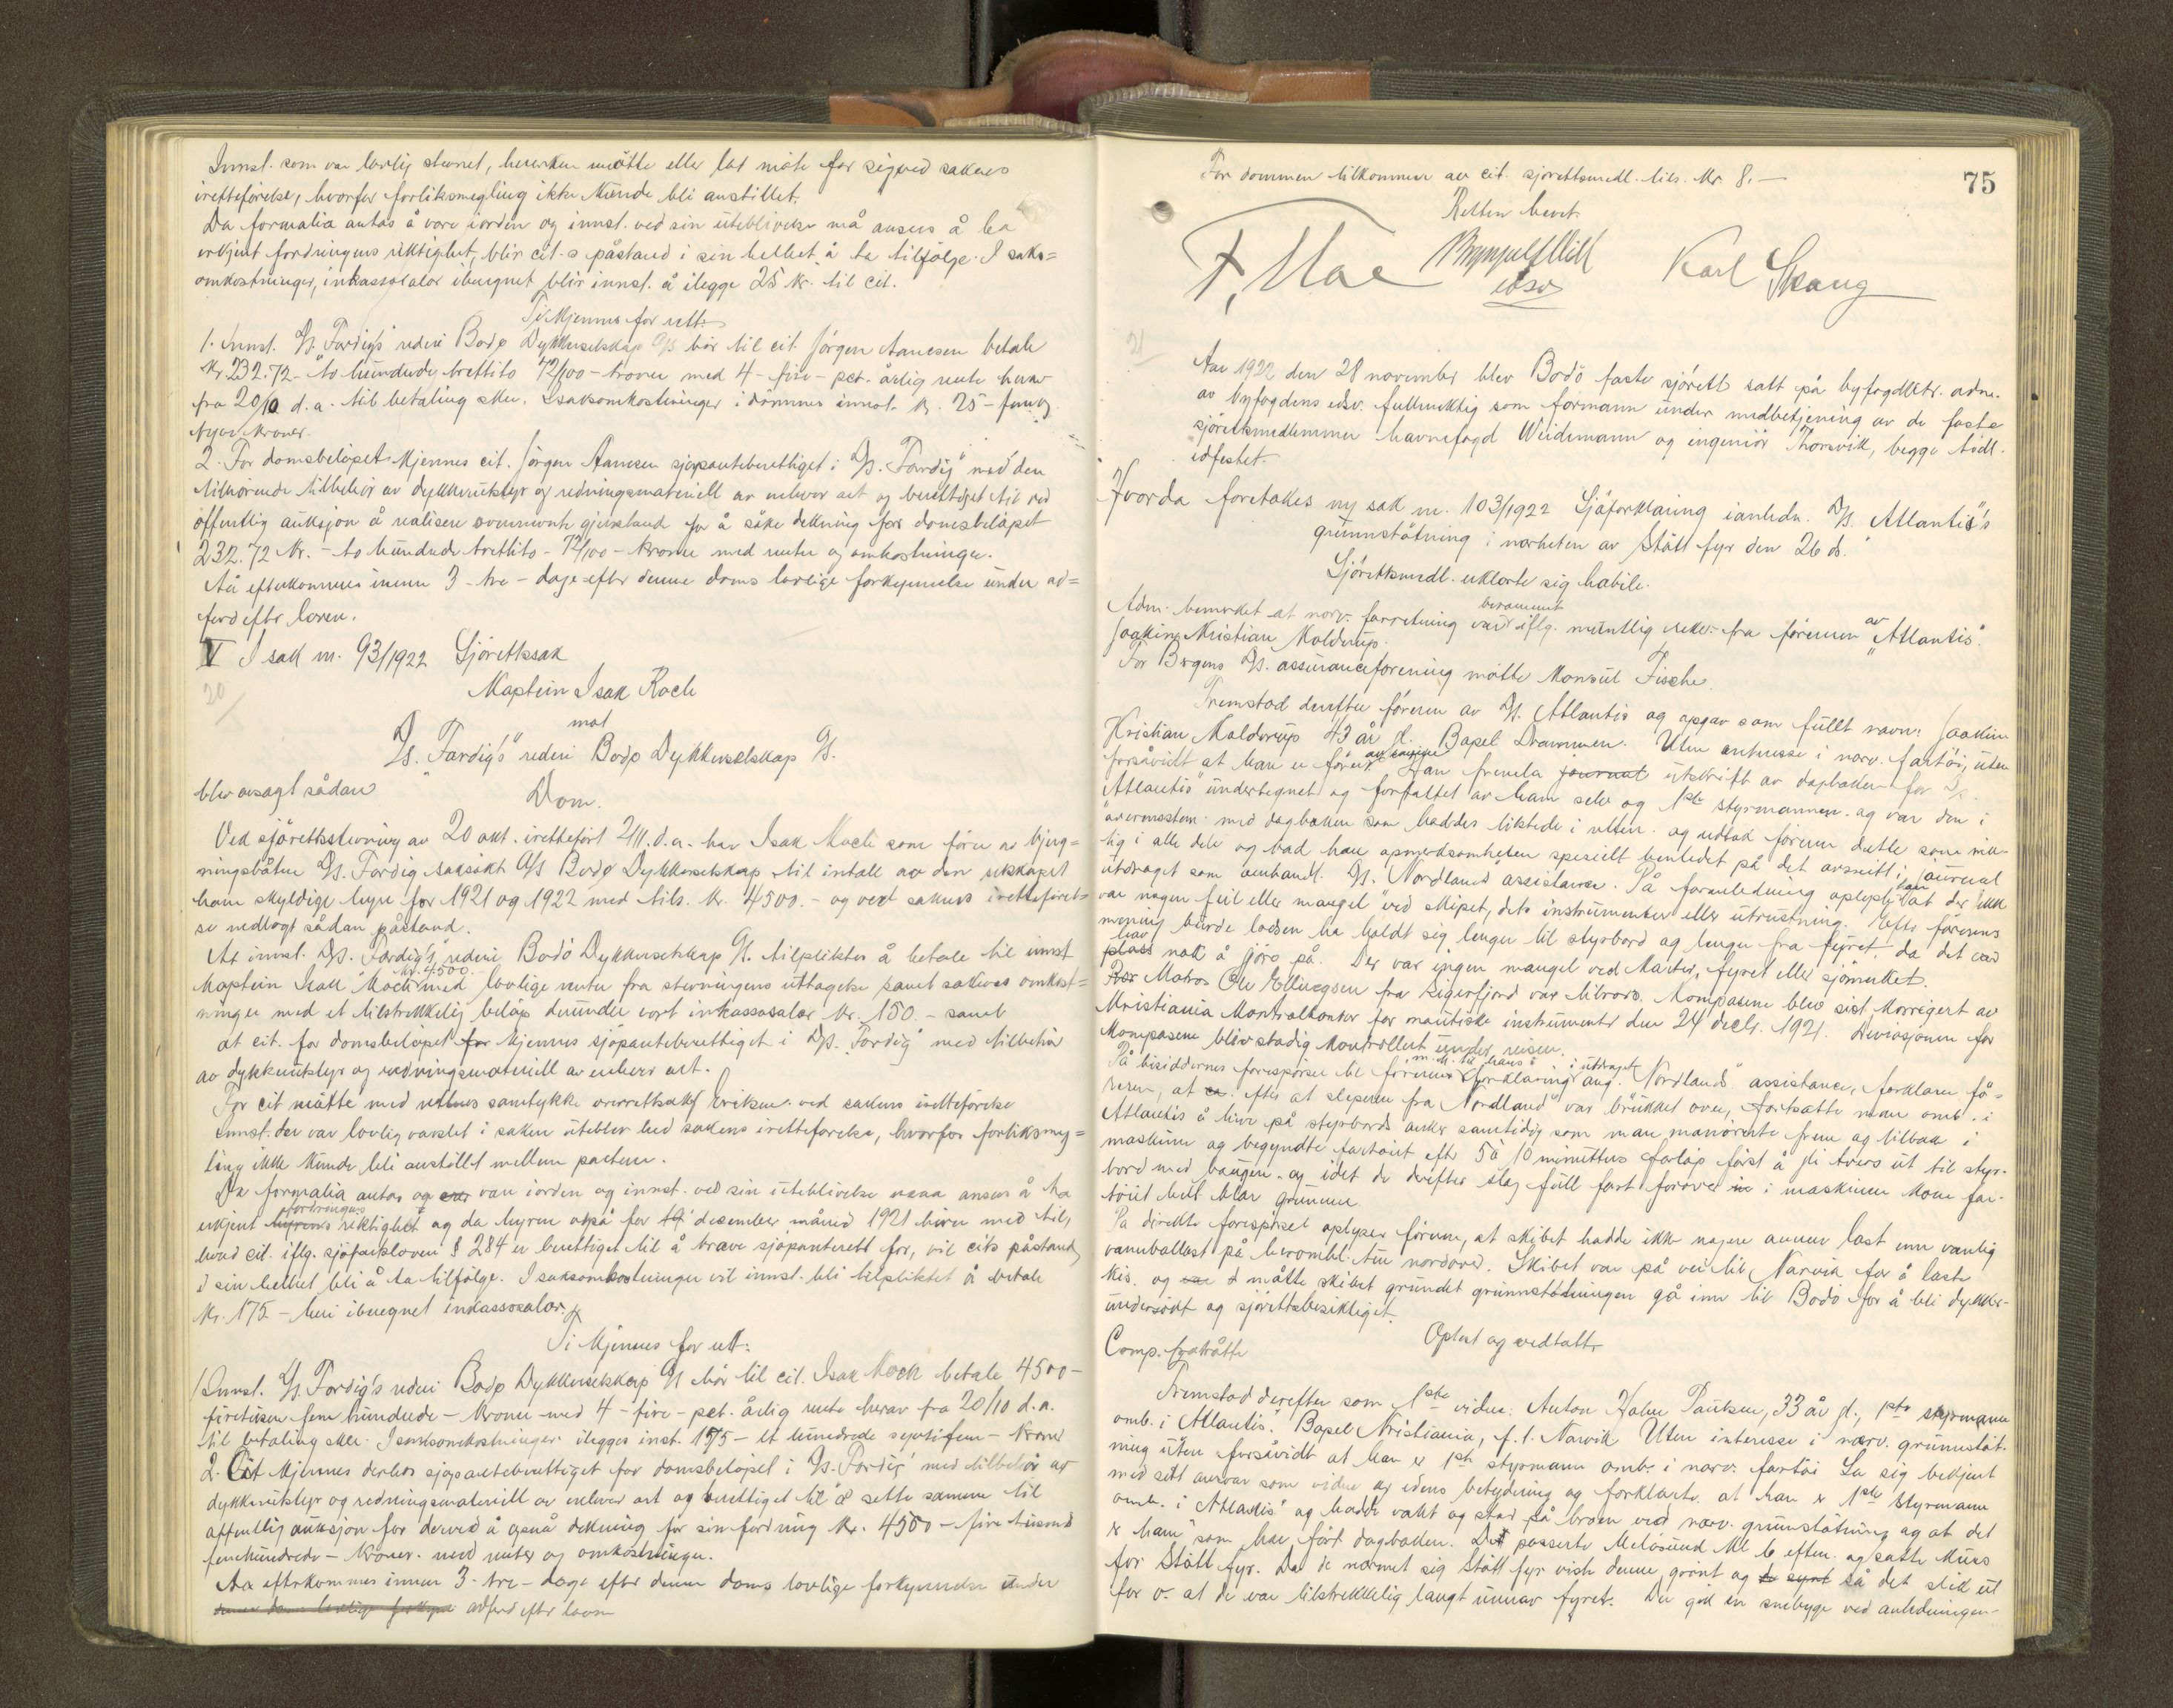 Innst. som var lovlig stevnet, hverken møtte eller lot møte for sig ved sakens
iretteførelse, hvorfor forliksmegling ikke kunde bli anstillet.
Da formalia antas å være iorden og innst. ved sin uteblivelse må anses å ha
erkjent fordringens riktighet, blir cit.s påstand i sin helhet å ta tilfølge. I saks=
omkostninger, inkassosalær iberegnet blir innst. å ilegge 25 kr. til cit.
Ti kjennes for rett:
1. Innst. D/s. "Færdig's" rederi Bodø Dykkerselskap A/S bør til cit. Jörgen Aanesen betale
kr. 232.72 - to hundrede trettito 72/100 - kroner med 4 - fire - pct. årlig rente herav
fra 20/10 d.a. til betaling sker. I saksomkostninger idømmes innst. kr. 25 - fem og
tyve kroner.
2. For domsbeløpet kjennes cit. Jörgen Aanesen sjøpanteberettiget i D/s. "Færdig" med den
tilhørende tilbehör av dykkerutstyr og redningsmateriell av enhver art og berettiget til ved
offentlig auksjon å realisere ovennevnte gjenstand for å söke dekning for domsbeløpet
232.72 kr. - to hundrede trettito - 72/100 - kroner med renter og omkostninger.
Aa efterkommes innen 3 - tre - dage efter denne doms lovlige forkynnelse under ad=
ferd efter loven.
V I sak nr. 93/1922 Sjörettssak
20
Kaptein Isak Koch
mot
D/s. "Færdig's" rederi Bodø Dykkerselskap A/s.
blev avsagt sådan
Dom.
Ved sjörettsstevning av 20 okt. iretteført 2/11. d.a. har Isak Koch som förer av bjerg=
ningsbåten D/s. Færdig saksökt A/s Bodø Dykkerselskap til intall av den selskapet
ham skyldige hyre for 1921 og 1922 med tils. kr. 4500.- og ved sakens iretteførel=
se nedlagt sådan påstand.
At innst. D/s. "Færdig's" rederi Bodö Dykkerselskap A/s. tilpliktes å betale til innst
kaptein Isak Koch kr. 4500.- med lovlige renter fra stevningens uttagelse samt sakens omkost=
ninger med et tilstrekkelig beløp derunder vort inkassosalær kr. 150.- samt
at cit. for domsbeløpet for kjennes sjøpanteberettiget i D/s. "Færdig" med tilbehør
av dykkerutstyr og redningsmateriell av enhver art.
For cit møtte med rettens samtykke overrettssakf. Eriksen ved sakens iretteförelse
innst. der var lovlig varslet i saken uteblev ved sakens iretteførelse, hvorfor forliksmeg=
ling ikke kunde bli anstillet mellem partene.
Da formalia antas og være iorden og innst. ved sin uteblivelse maa anses å ha
erkjent fordringens riktighet og da hyren også for desember måned 1921 hører med til,
hvad cit. iflg. sjøfartsloven § 284 er berettiget til å kreve sjøpanterett for, vil cits påstand
i sin helhet bli å ta tilfölge. I saksomkostninger vil innst. bli tilpliktet å betale
kr. 175 - heri iberegnet inkassosalær.
Ti kjennes for rett:
1. Innst. D/s. Færdig's rederi Bodø Dykkerselskap A/s bør til cit. Isak Koch betale 4500 -
firetusen fem hundrede - kroner - med 4 - fire - pct. årlig rente herav fra 20/10 d.a.
til betaling sker. I saksomkostninger ilegges inst. 175 - et hundrede syvtifem - kroner
2. Cit kjennes derhos sjøpanteberettiget for domsbeløpet i D/s. "Færdig" med tilbehør av
dykkerutstyr og redningsmateriell av enhver art og berettiget til å sette samme til
offentlig auksjon for derved å opnå dekning for sin fordring kr. 4500 - fire tusend
femhundrede - kroner. med renter og omkostninger.
Aa efterkommes innen 3 - tre - dage efter denne doms lovlige forkynnelse under
adferd efter loven
75
For dommen tilkommer av cit. sjørettsmedl. tils. kr. 8.-
Retten hevet.
F. Moe
Karl Skaug
21
Aar 1922 den 28 november blev Bodö faste sjörett satt på byfogdktr. adm.
av byfogdens edsv. fullmektig som formann under medbetjening av de faste
sjörettsmedlemmer havnefogd Weidemann og ingeniör Thorsvik, begge tidl.
edfestet.
Hvorda foretokes ny sak nr. 103/1922 Sjøforklaring i anledn. D/s. "Atlantis"'s
grunnstötning i nærheten av Stött fyr den 26 ds.
Sjörettsmedl. erklærte sig habile.
Adm. bemerket at nærv. forretning var berammet iflg. muntlig rekv. fra föreren av "Atlantis".
Joakim Kristian Kolderup.
For Bergens D/s. assuranceforening møtte Konsul Fischer.
Fremstod derefter föreren av D/s. Atlantis og opgav som fullt navn: Joakim
Kristian Kolderup 43 år g. Bopel Drammen. Uten interesse i nærv. fartöi, uten
forsåvidt at han er förer av samme. Han fremla journal utskrift av dagboken for D/s.
"Atlantis" undertegnet og forfattet av ham selv og 1ste styrmannen og var den i
overensstem. med dagboken som haddes tilstede i retten. og vedtok föreren dette som rik-
tig i alle dele og bad han opmerksomheten spesielt henledet på det avsnitt i journal
utdraget som omhandl. D/s. Nordlands assistanse. På foranledning oplyste han at der ikke
var nogen feil eller mangel ved skipet, dets instrumenter eller utrustning. Efter förerens
mening burde losen ha holdt sig lenger til styrbord og lenger fra fyret, da det var
hav nok å gjöre på. Der var ingen mangel ved karter, fyret eller sjömerket.
Matros Ole Ellingsen fra Sigerfjord var tilrors. Kompasene blev sist korrigert av
Kristiania Kontrolkontor for nautiske instrumenter den 24 decbr. 1921. Deviasjonen for
kompasene blev stadig kontrollert under reisen.
På bisiddernes forespörsel til föreren m.h. til hans forklaring i utdraget ang. "Nordlands" assistance, forklarer fö-
reren, at efter at sleperen fra "Nordland" var brukket over, fortsatte man omb. i
Atlantis å hive på styrbords anker samtidig som man manövrerte frem og tilbak i
maskinen og begyndte fartöiet efter 5 à 10 minutters forlöp först å gli tvers ut til styr-
bord med baugen. og idet de derefter slog full fart forover i maskinen kom far-
töiet helt klar grunnen.
På direkte forespörsel oplyser föreren, at skibet hadde ikke nogen annen last enn vanlig
vannballast på heromhl. tur nordover. Skibet var på vei til Narvik for å laste
kis. og måtte skibet grundet grunnstötningen gå inn til Bodö for å bli dykker-
undersökt og sjörettsbesiktiget.
Oplest og vedtatt.
Comp. fratrådte
Fremstod derefter som 1ste vidne: Anton Hahn Paulsen, 33 år g., 1ste styrmann
omb. i "Atlantis". Bopel Kristiania, f. i. Narvik Uten interesse i nærv. grunnstöt-
ning uten forsåvidt at han er 1ste styrmann omb. i nærv. fartöi La sig bekjent
med sitt ansvar som vidne og edens betydning og forklarte at han er 1ste styrmann
omb. i "Atlantis" og hadde vakt og stod på broen ved nærv. grunnstötning og at det
er ham som har fört dagboken. De passerte Melösund kl. 6 efterm. og satte kurs
for Stött fyr. Da de nærmet sig Stött fyr viste denne grönt og så det slik ut
for v. at de var tilstrekkelig langt unnav fyret. Der gik en snebyge ved anledningen